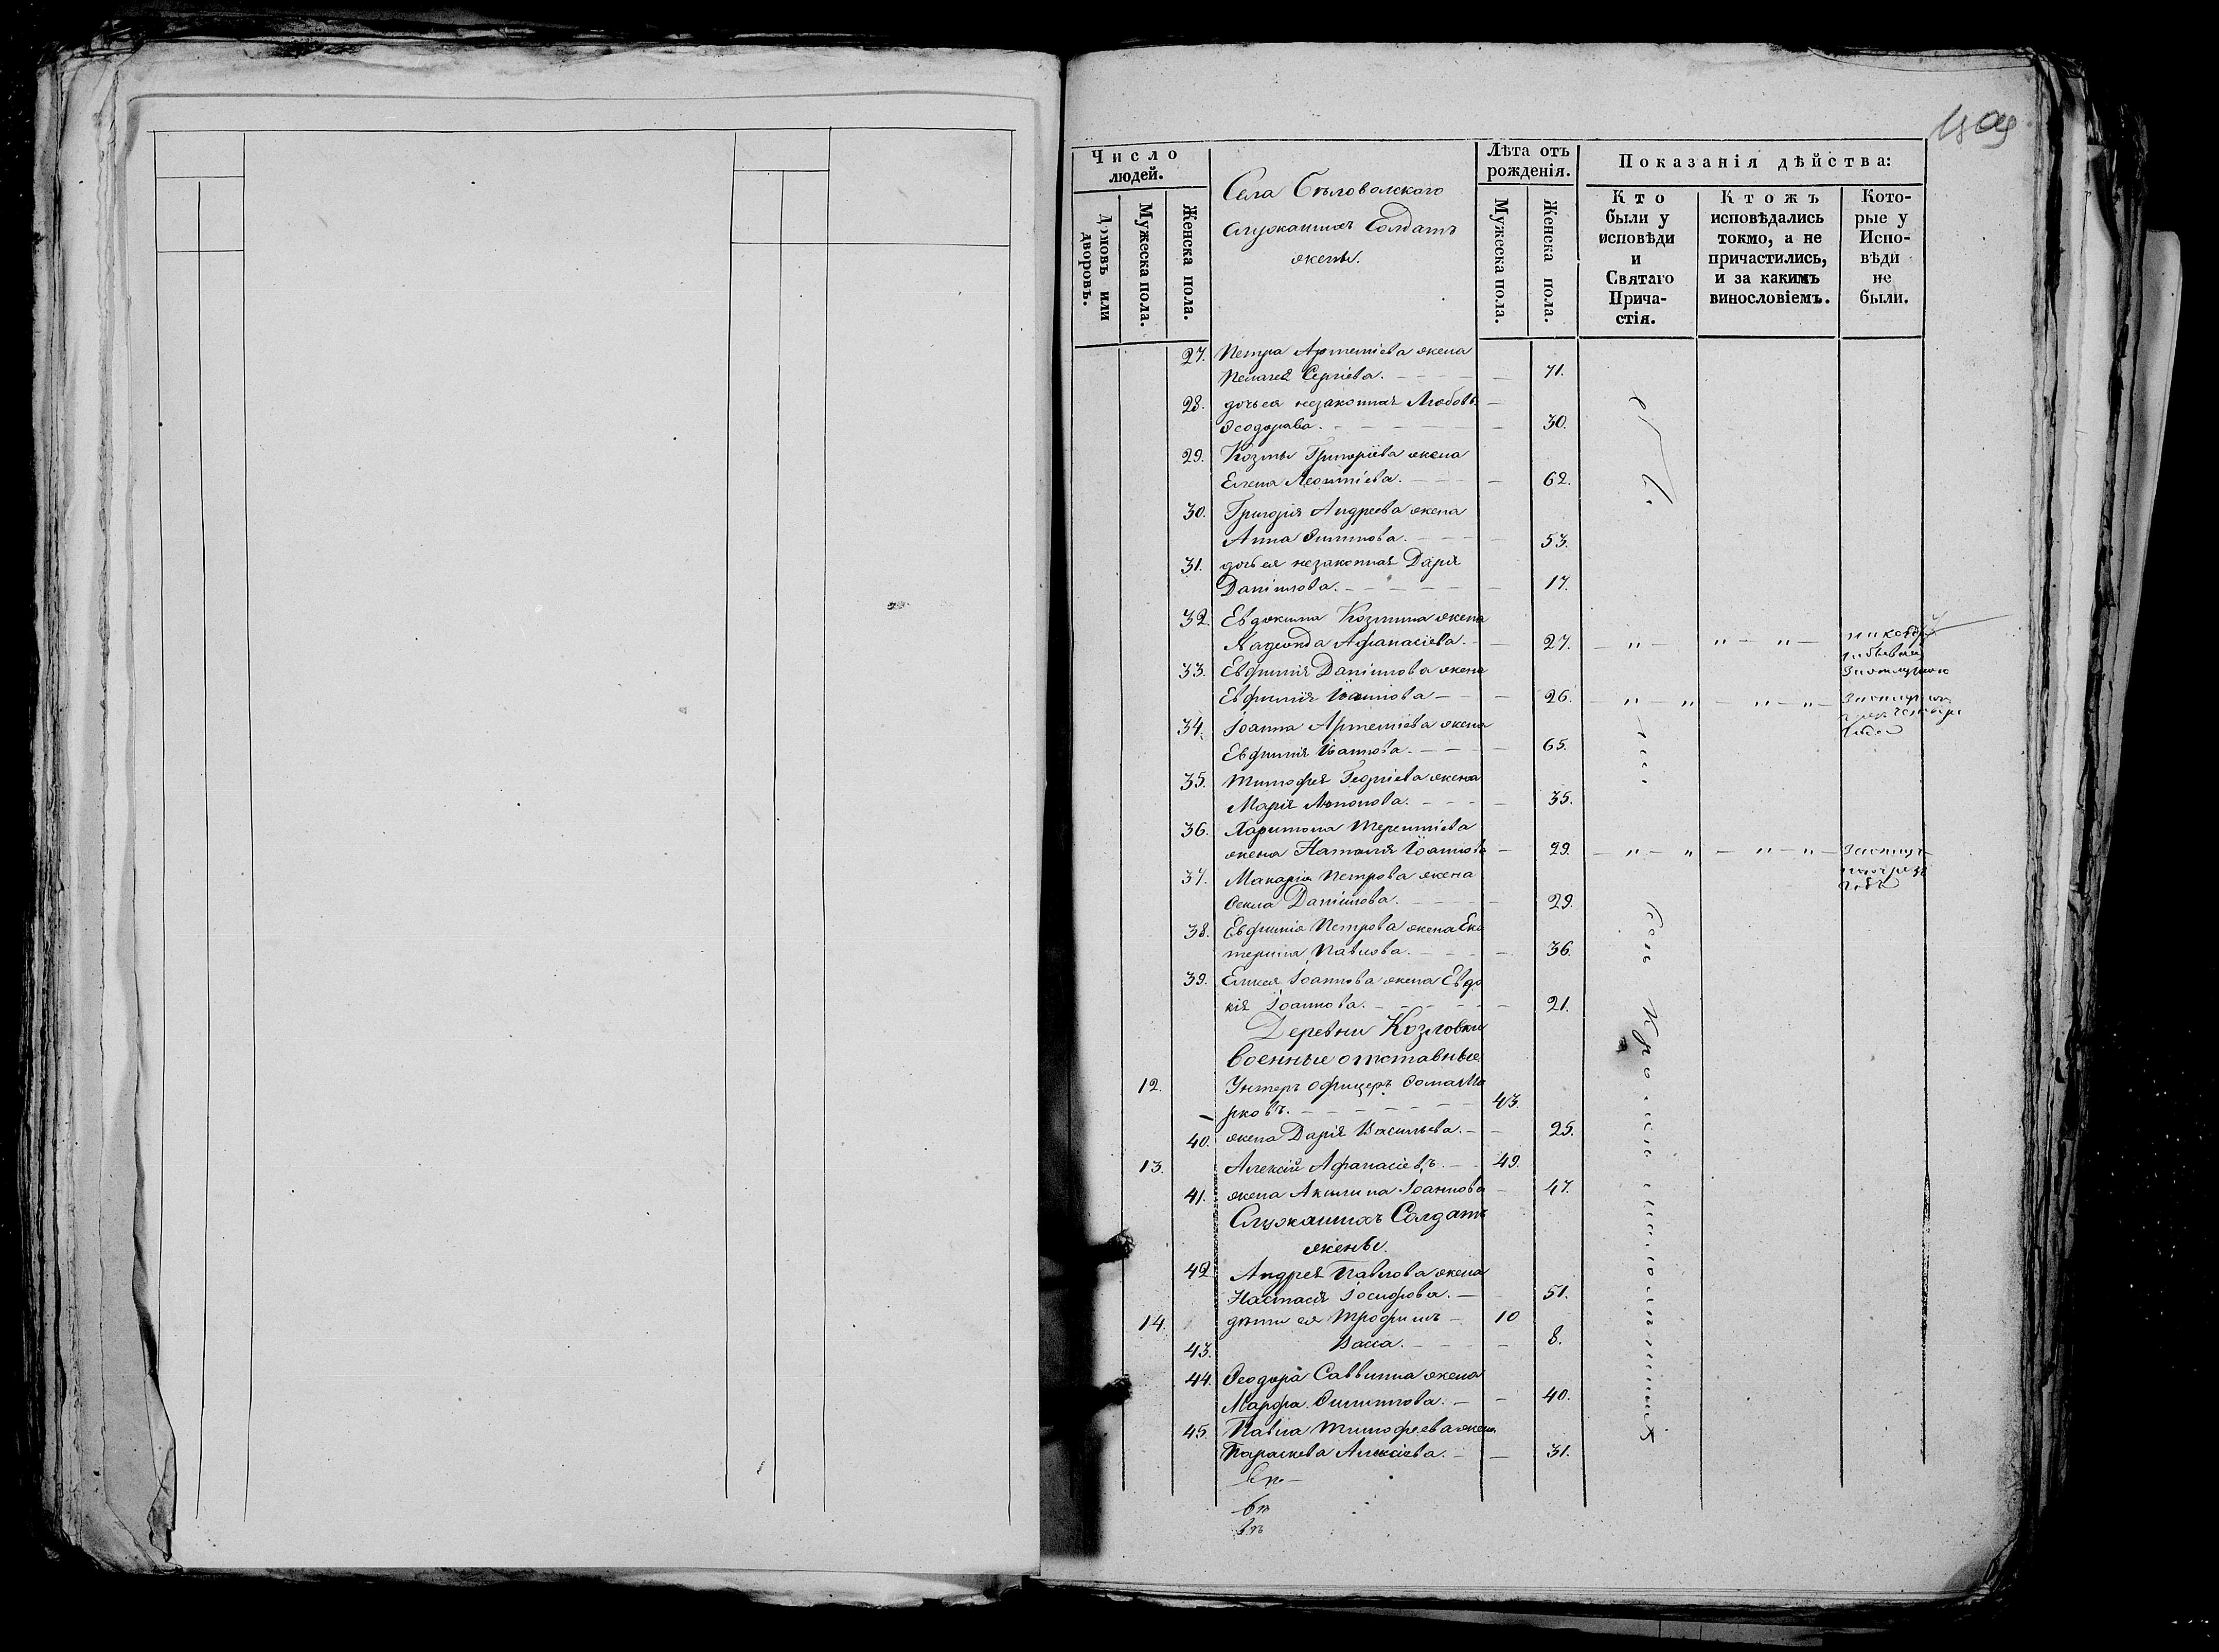 Число людей.
Домовъ или дворовъ.
Мужеска пола.
Женска пола.
Села Бѣловолскаго
служащихъ Солдатъ
жены.
Лѣта отъ рожденія.
Мужеска пола.
Женска пола.
Показанія дѣйства:
Кто были у исповѣди и Святаго Причастія.
Ктожъ исповѣдались токмо, а не причастились, и за какимъ винословіемъ.
Которые у Исповѣди не были.
27. Петра Артеміева жена
Пелагея Сергіева. 71.
28. дочь ея незаконная Любовь
Ѳеодорава. 30.
29. Козмы Григоріева жена
Елена Леонтіева. 62.
30. Григорія Андреева жена
Анна Филипова. 53.
31. дочь ея незаконная Дарія
Даніилова. 17.
32. Евдокима Козмина жена
Надежда Афанасіева. 27.
33. Евфимія Даніилова жена
Евфимія Іоаннова 26.
34. Іоанна Артеміева жена
Евфимія Іоаннова. 65.
35. Тимофея Георгіева жена
Марія 35.
36. Харитона Терентіева
жена Наталія Іоаннова 29.
37. Макарія Петрова жена
Ѳекла Даніилова. 29.
38. Евфимія Петрова жена Ека
терина Павлова. 36.
39. Елисея Іоаннова жена Евдо
кія Іоаннова. 21.
Деревни Козловки
Военные отставные.
12. Унтеръ офицеръ Ѳома Ма
рковъ. 43.
40. жена Дарія Васильева. 25.
13. Алексій Афанасіевъ. 49.
41. жена Акилина Іоаннова 47.
Служащихъ Солдатъ
жены.
42. Андрея Павлова жена
Настасія Іосифова. 51.
14. дѣти ея Трофимъ 10
43. Васса. 8.
44. Ѳеодора Саввина жена
Марфа Филиппова. 40.
45. Павла Тимофеева жена
Параскева Алексіева. 31.